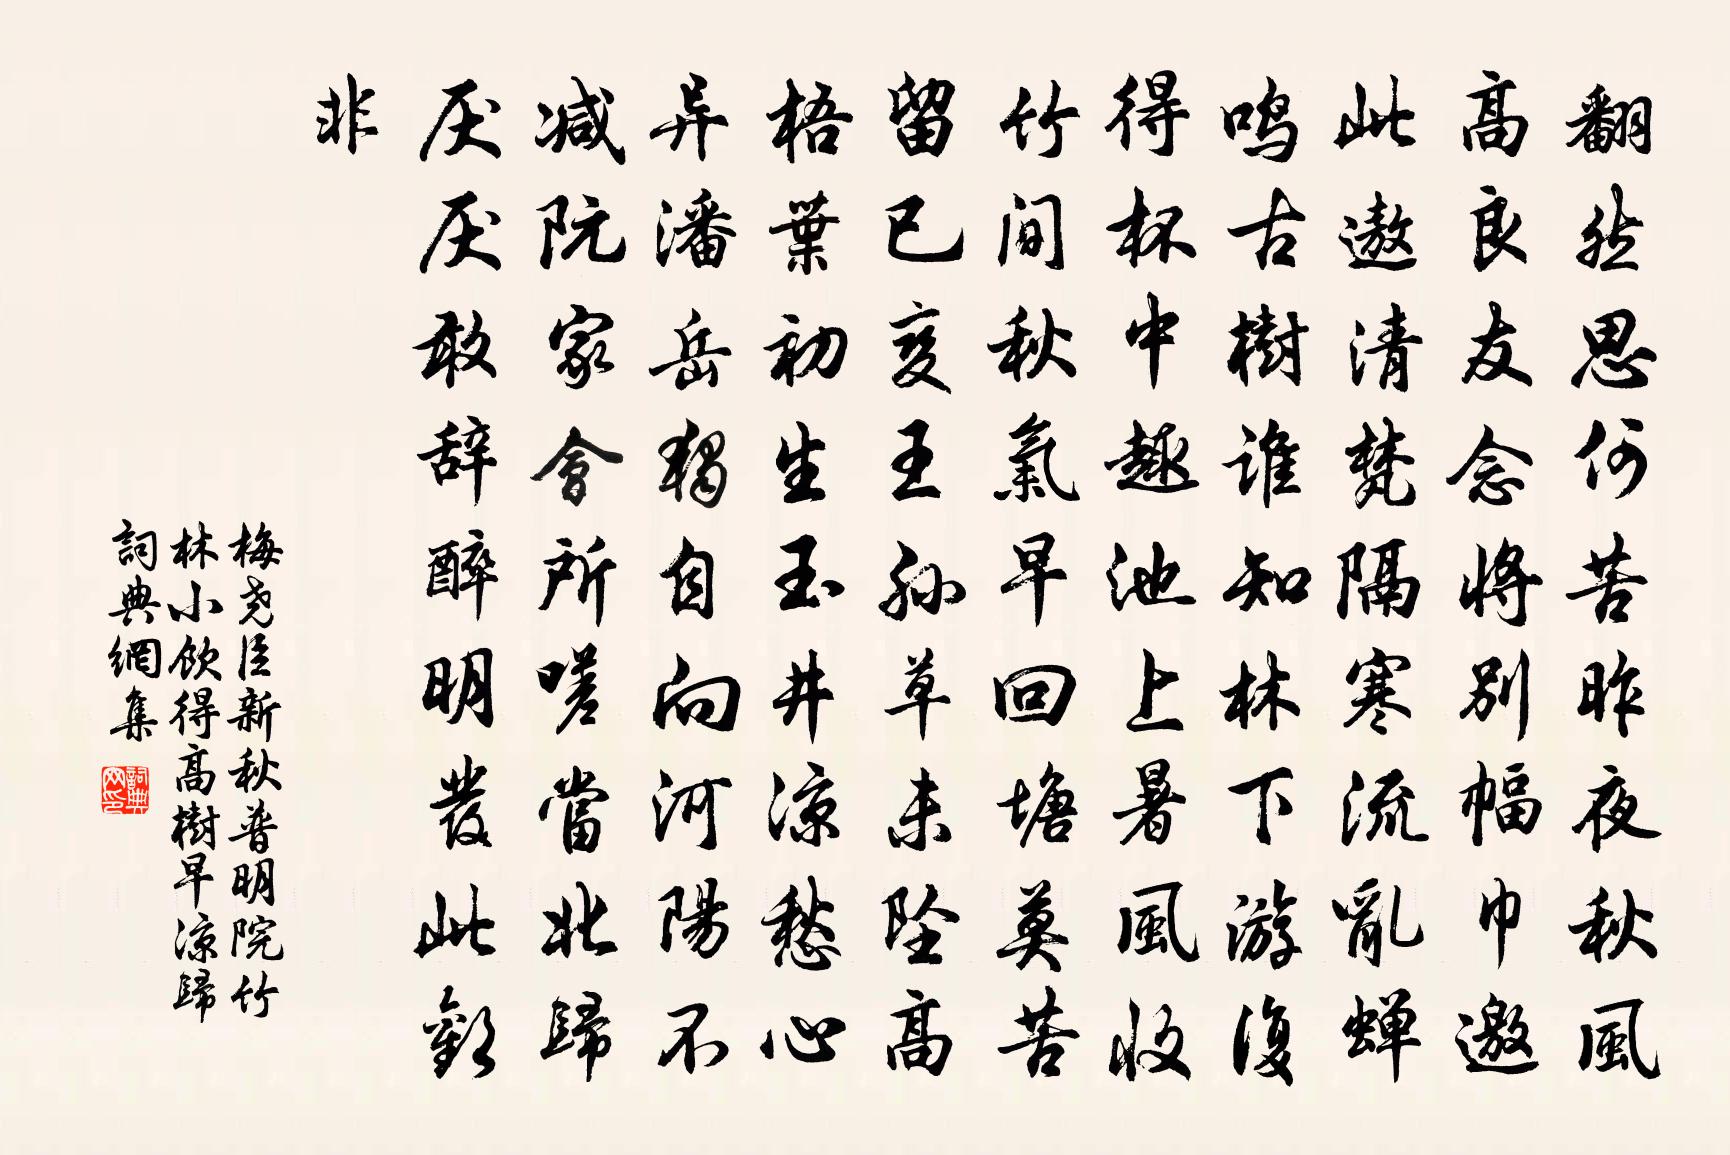 翻然思何苦昨夜秋風
高良友念将别幅巾邀
此遨清梵隔寒流亂蝉
鸣古樹谁知林下游復
得杯中趣池上暑風收
竹间秋氣早回塘莫苦
留已变王孙草未坠高
梧葉初生玉井凉愁心
异潘岳獨自向河陽不
减阮家會所嗟當北歸
厌厌敢辞醉明發此歡
非
梅尧臣新秋普明院竹
林小饮得高樹早凉歸
詞典網集
詞典
网印